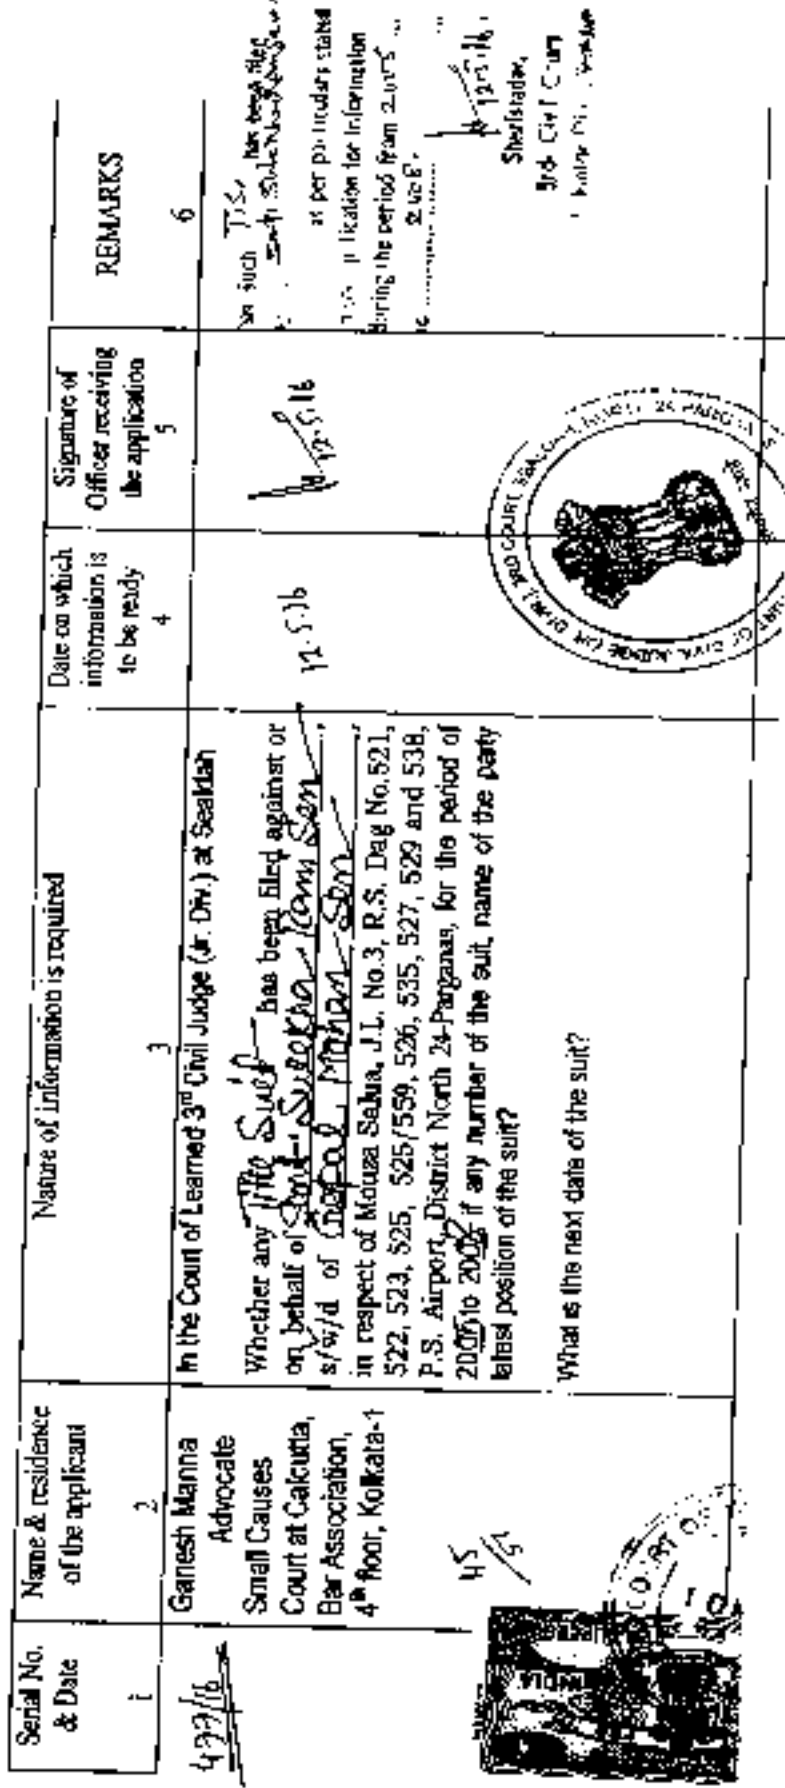 Serial No.
& Date
1
Name & residence
of the applicant
2
Nature of information is required
3
Date on which
information is
to be ready
4
Signature of
Officer receiving
the application
5
REMARKS
6
Ganesh Manna
Advocate
Small Causes
Court at Calcutta,
Bar Association,
4th floor, Kolkata-1
In the Court of Learned 3rd Civil Judge (Jr. Div.) at Sealdah
Whether any Title Suit has been filed against or
on behalf of Smt. Sulekha Rani Sen
s/w/d of Gopal Mohan Sen
in respect of Mouza Salua, J.L. No.3, R.S. Dag No.521,
522, 523, 525, 525/559, 526, 535, 527, 529 and 538,
P.S. Airport, District North 24-Parganas, for the period of
to if any number of the suit, name of the party
latest position of the suit?
What is the next date of the suit?
12.5.16
12.5.16
such T.S. has been filed
as per particulars stated
for information
during the period from 2005
12.5.16
Sheristadar,
3rd Civil Court
3RD COURT 24 PARGANAS
COURT OF CIVIL JUDGE (JR. DIVN.)
INDIA
COURT OF